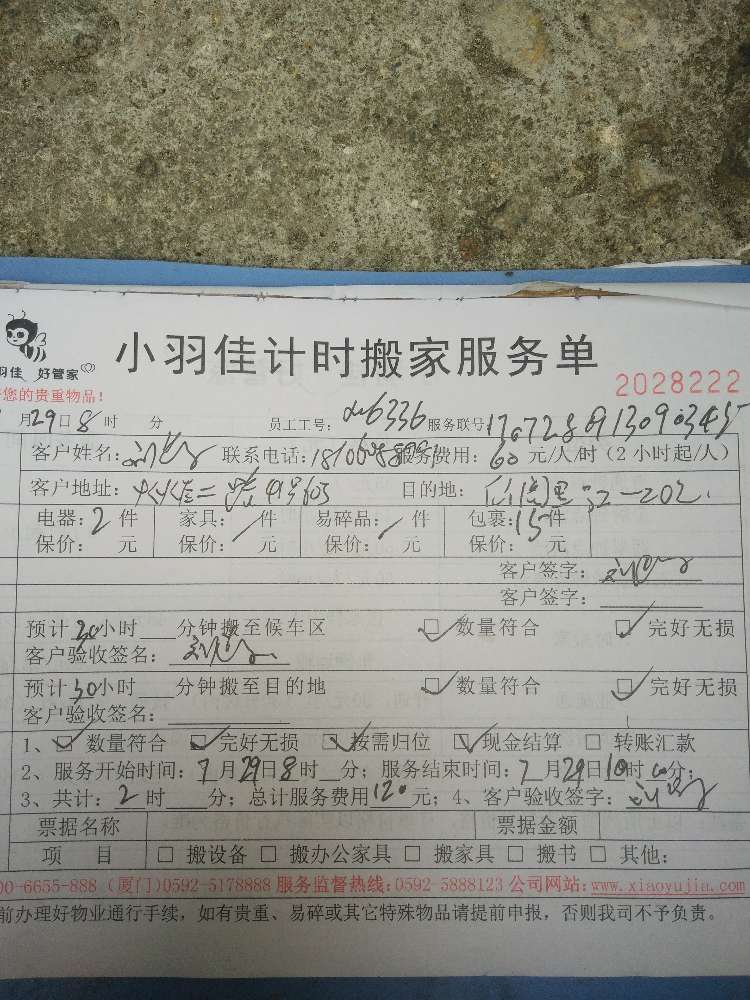 羽佳 好管家
小羽佳计时搬家服务单
2028222
您的贵重物品!
月29日8时 分 员工工号: 6336 服务联号
客户姓名: 联系电话: 服务费用:60元/人/时(2小时起/人)
客户地址: 目的地:
电器:2件 家具:/件 易碎品:/件 包裹:15件
保价: 元 保价: 元 保价: 元 保价: 元
客户签字:
客户签字:
预计30小时 分钟搬至候车区 ☑数量符合 ☑完好无损
客户验收签名:
预计30小时 分钟搬至目的地 ☑数量符合 ☑完好无损
客户验收签名:
1、☑数量符合 ☑完好无损 ☑按需归位 ☑现金结算 □转账汇款
2、服务开始时间:7月29日8时 分;服务结束时间:7月29日10时00分;
3、共计:2时 分;总计服务费用120元;4、客户验收签字:
票据名称 票据金额
项 目 □搬设备 □搬办公家具 □搬家具 □搬书 □其他:
00-6655-888(厦门)0592-5178888 服务监督热线:0592-5888123 公司网站:www.xiaoyujia.com
前办理好物业通行手续,如有贵重、易碎或其它特殊物品请提前申报,否则我司不予负责。